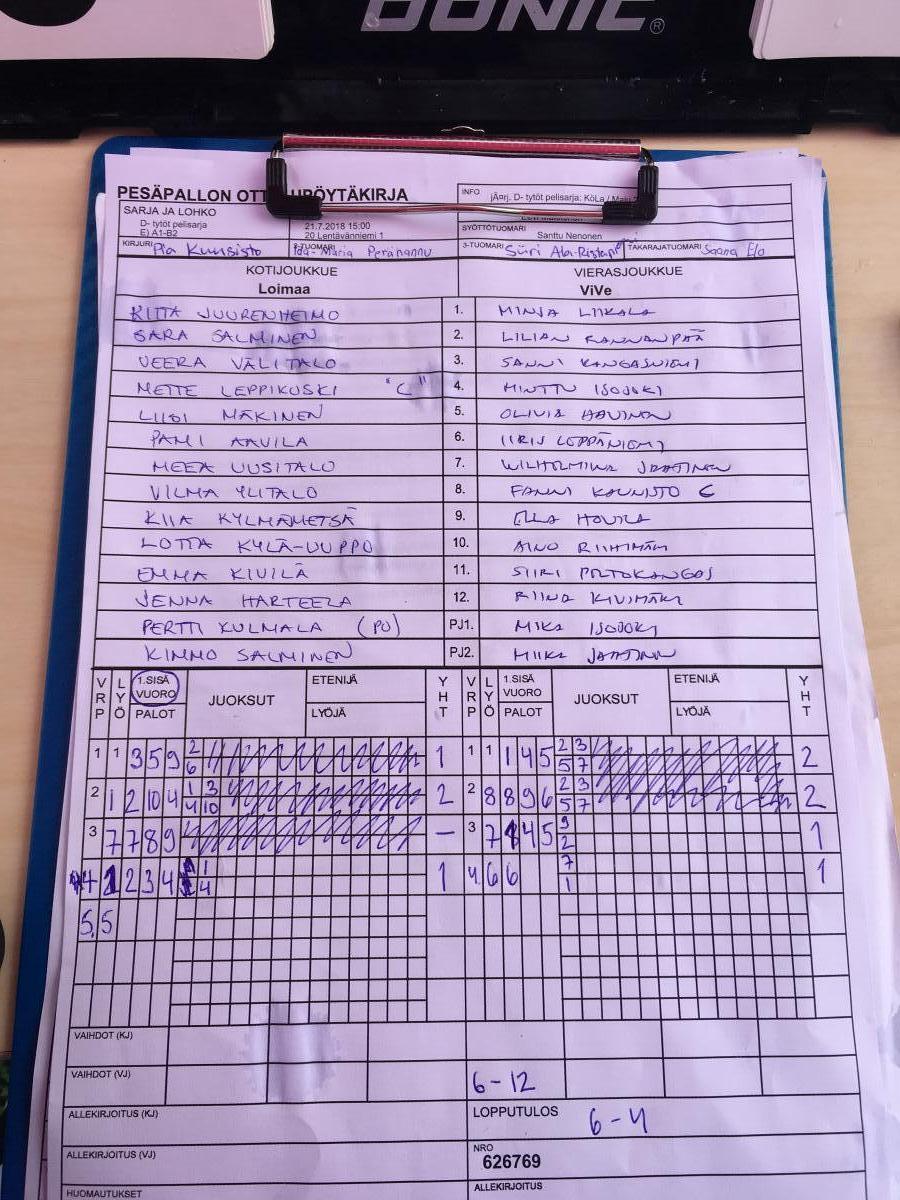 DONIC®
PESÄPALLON OTT URÖYTÄKIRJA
INFO
jÄ¤rj. D- tytöt pelisarja: KöLa / Man
SARJA JA LOHKO
D- tytöt pelisarja
E) A1-B2
21.7.2018 15:00
20 Lentävänniemi 1
SYÖTTÖTUOMARI
Santtu Nenonen
KIRJURI Pia Kuusisto
2-TUOMARI Ida-Maria Peränannu
3-TUOMARI Siiri Ala-Ristapi
TAKARAJATUOMARI Saana Elo
KOTIJOUKKUE VIERASJOUKKUE
Loimaa ViVe
RIITTA JUURENHEIMO 1. MINJA LIIKALA
SARA SALMINEN 2. LILIAN RANNANPÄÄ
VEERA VÄLITALO 3. SANNI KANGASNIEMI
METTE LEPPIKOSKI "C" 4. MINTTU ISOJOKI
MÄKINEN 5. OLIVIA
AAVILA 6. IIRIS LEPPÄNIEMI
MEEA UUSITALO 7. WILHELMIINA JAATINEN
VILMA YLITALO 8. FANNI KAUNISTO C
KIIA KYLMÄMETSÄ 9. ELLA
LOTTA KYLÄ-UUPPO 10. AINO RIIHIMÄKI
EMMA KIVILÄ 11. SIIRI PELTOKANGAS
JENNA HARTEELA 12. RIINA KIVIMÄKI
PERTTI KULMALA (PJ) PJ1. MIKA ISOJOKI
KIMMO SALMINEN PJ2. MIIKA JAATINEN
VRP LYÖ 1.SISÄ VUORO PALOT JUOKSUT ETENIJÄ LYÖJÄ YHT VRP LYÖ 1.SISÄ VUORO PALOT JUOKSUT ETENIJÄ LYÖJÄ YHT
1 1 3 5 9 2 6 1 1 1 1 4 5 2 3 5 7 2
2 1 2 10 4 1 3 4 10 2 2 8 8 9 6 2 3 5 7 2
3 7 7 8 9 – 3 7 4 5 9 2 1
4 1 2 3 4 1 4 1 4. 6 6 7 1 1
5. 5
VAIHDOT (KJ)
VAIHDOT (VJ) 6-12
ALLEKIRJOITUS (KJ) LOPPUTULOS 6-4
ALLEKIRJOITUS (VJ) NRO
626769
HUOMAUTUKSET ALLEKIRJOITUS